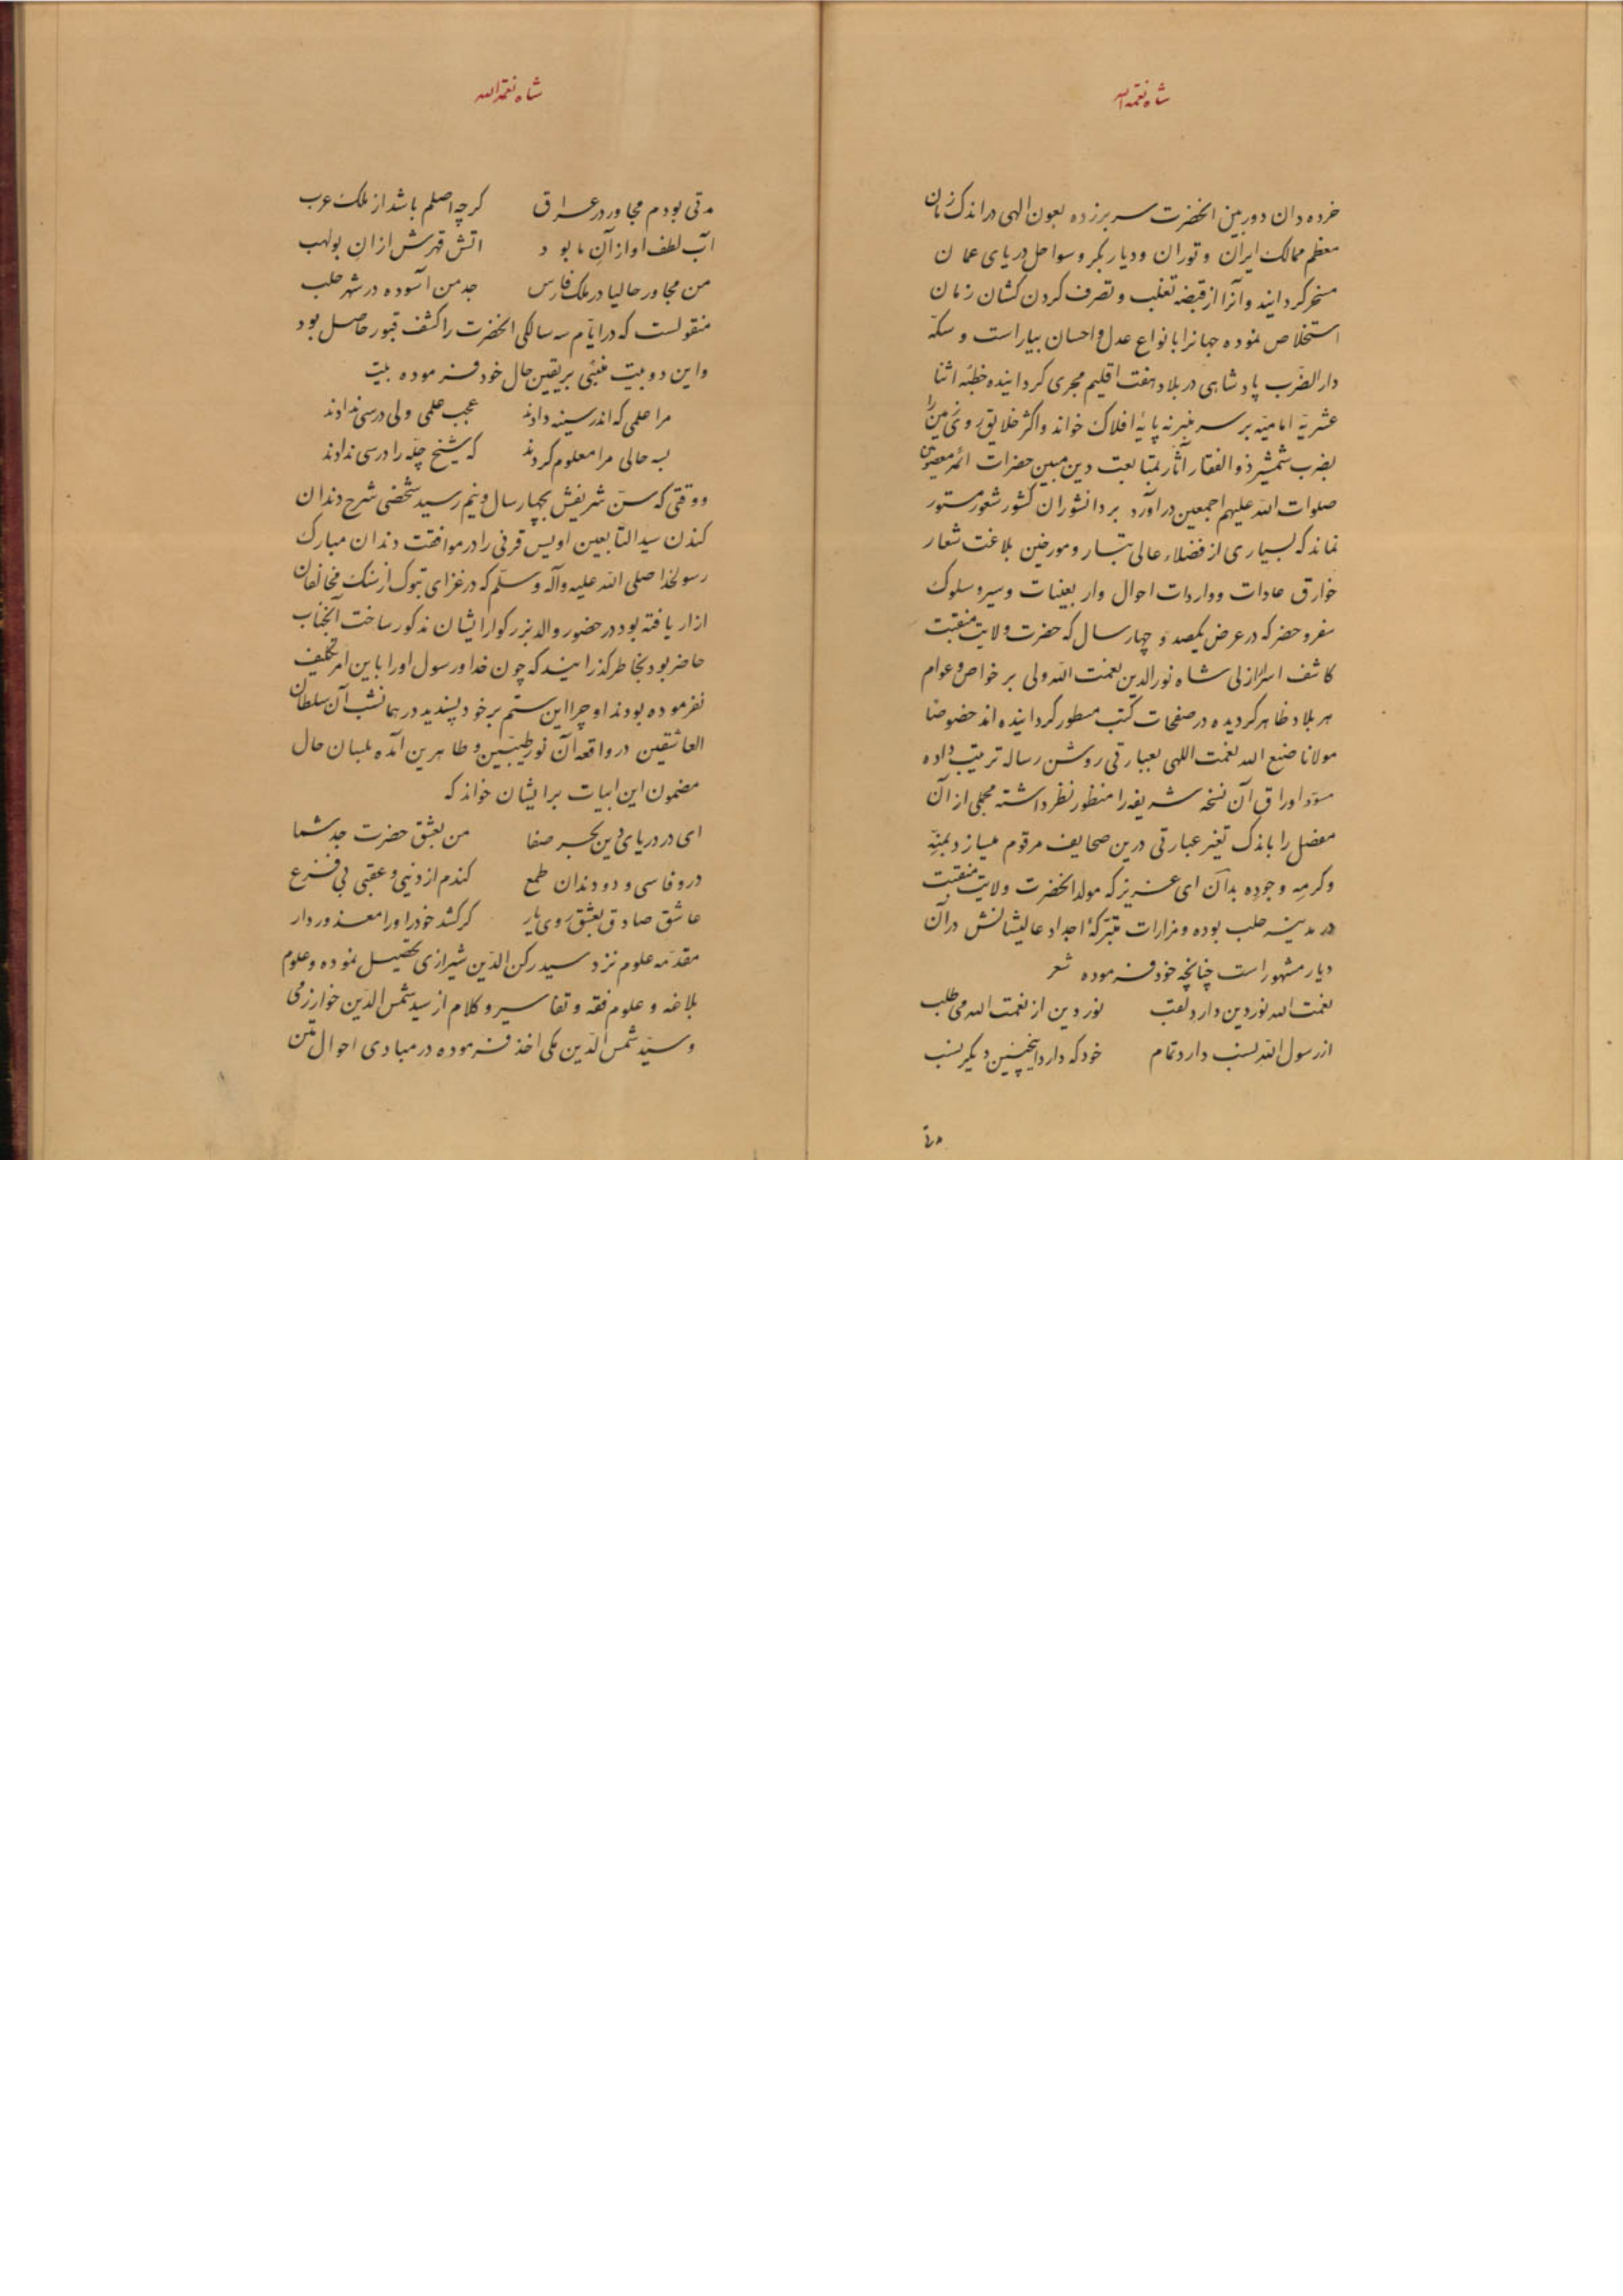 شاه نعمةالله
خرده دان دوربین انحضرت سر برزده بعون الهی در اندک زمان
معظم ممالک ایران و توران و دیار بکر و سواحل دریای عمان
مسخر کردانید و آنرا از قبضه تغلب و تصرف کردن کشان زمان
استخلاص نموده جهانرا بانواع عدل و احسان بیاراست و سکه
دارالضرب پادشاهی در بلاد هفت اقلیم مجری کردانیده خطبه اثنا
عشریه امامیه بر سر منبر نه پایه افلاک خواند و اکثر خلایق روی زمین را
بضرب شمشیر ذوالفقار آثار بمتابعت دین مبین حضرات ائمه معصومین
صلوات الله علیهم اجمعین درآورد بر دانشوران کشور شعور مستور
نماند که بسیاری از فضلاء عالی تبار و مورخین بلاغت شعار
خوارق عادات و واردات احوال و اربعینات و سیر و سلوک
سفر و حضر که در عرض یکصد و چهار سال که حضرت ولایت منقبت
کاشف اسرار ازلی شاه نورالدین نعمت الله ولی بر خواص و عوام
هر بلاد ظاهر کردیده در صفحات کتب مسطور کردانیده اند خصوصا
مولانا صنع الله نعمت اللهی بعبارتی روشن رساله ترتیب داده
مسود اوراق آن نسخه شریفه را منظور نظر داشته مجملی از آن
مفصل را باندک تغیر عبارتی درین صحایف مرقوم میسازد بمنه
و کرمه و جوده بدان ای عزیز که مولد انحضرت ولایت منقبت
در مدینه حلب بوده و مزارات متبرکه اجداد عالیشانش در آن
دیار مشهور است چنانچه خود فرموده شعر
نعمت الله نور دین دارد لقب نور دین از نعمت الله می طلب
از رسول الله نسب دارد تمام خود که دارد اینچنین دیکر نسب
مدتی
شاه نعمةالله
مدتی بودم مجاور در عراق کرچه اصلم باشد از ملک عرب
آب لطف او از آن ما بود اتش قهرش از ان بولهب
من مجاور حالیا در ملک فارس جد من آسوده در شهر حلب
منقولست که در ایام سه سالکی انحضرت را کشف قبور حاصل بود
و این دو بیت منبئی بر یقین حال خود فرموده بیت
مرا علمی که اندر سینه دادند عجب علمی ولی درسی ندادند
بسه حالی مرا معلوم کردند که شیخ چله را درسی ندادند
و وقتی که سن شریفش بچهار سال و نیم رسید شخصی شرح دندان
کندن سید التابعین اویس قرنی را در موافقت دندان مبارک
رسول خدا صلی الله علیه وآله وسلم که در غزای تبوک از سنک مخالفان
ازار یافته بود در حضور والد بزرکوار ایشان مذکور ساخت آنجناب
حاضر بود بخاطر گذرانید که چون خدا و رسول او را باین امر تکلیف
نفرموده بودند او چرا این ستم بر خود پسندید در همانشب آن سلطان
العاشقین در واقعه آن نور طیبین و طاهرین آمده بلسان حال
مضمون این ابیات بر ایشان خواند که
ای در دریای دین بحر صفا من بعشق حضرت جد شما
در وفا سی و دو دندان طمع کندم از دنیی و عقبی بی فزع
عاشق صادق بعشق روی یار کر کشد خود را و را معذور دار
مقدمه علوم نزد سید رکن الدین شیرازی تحصیل نموده و علوم
بلاغه و علوم فقه و تفاسیر و کلام از سید شمس الدین خوارزمی
و سید شمس الدین مکی اخذ فرموده در مبادی احوال متن